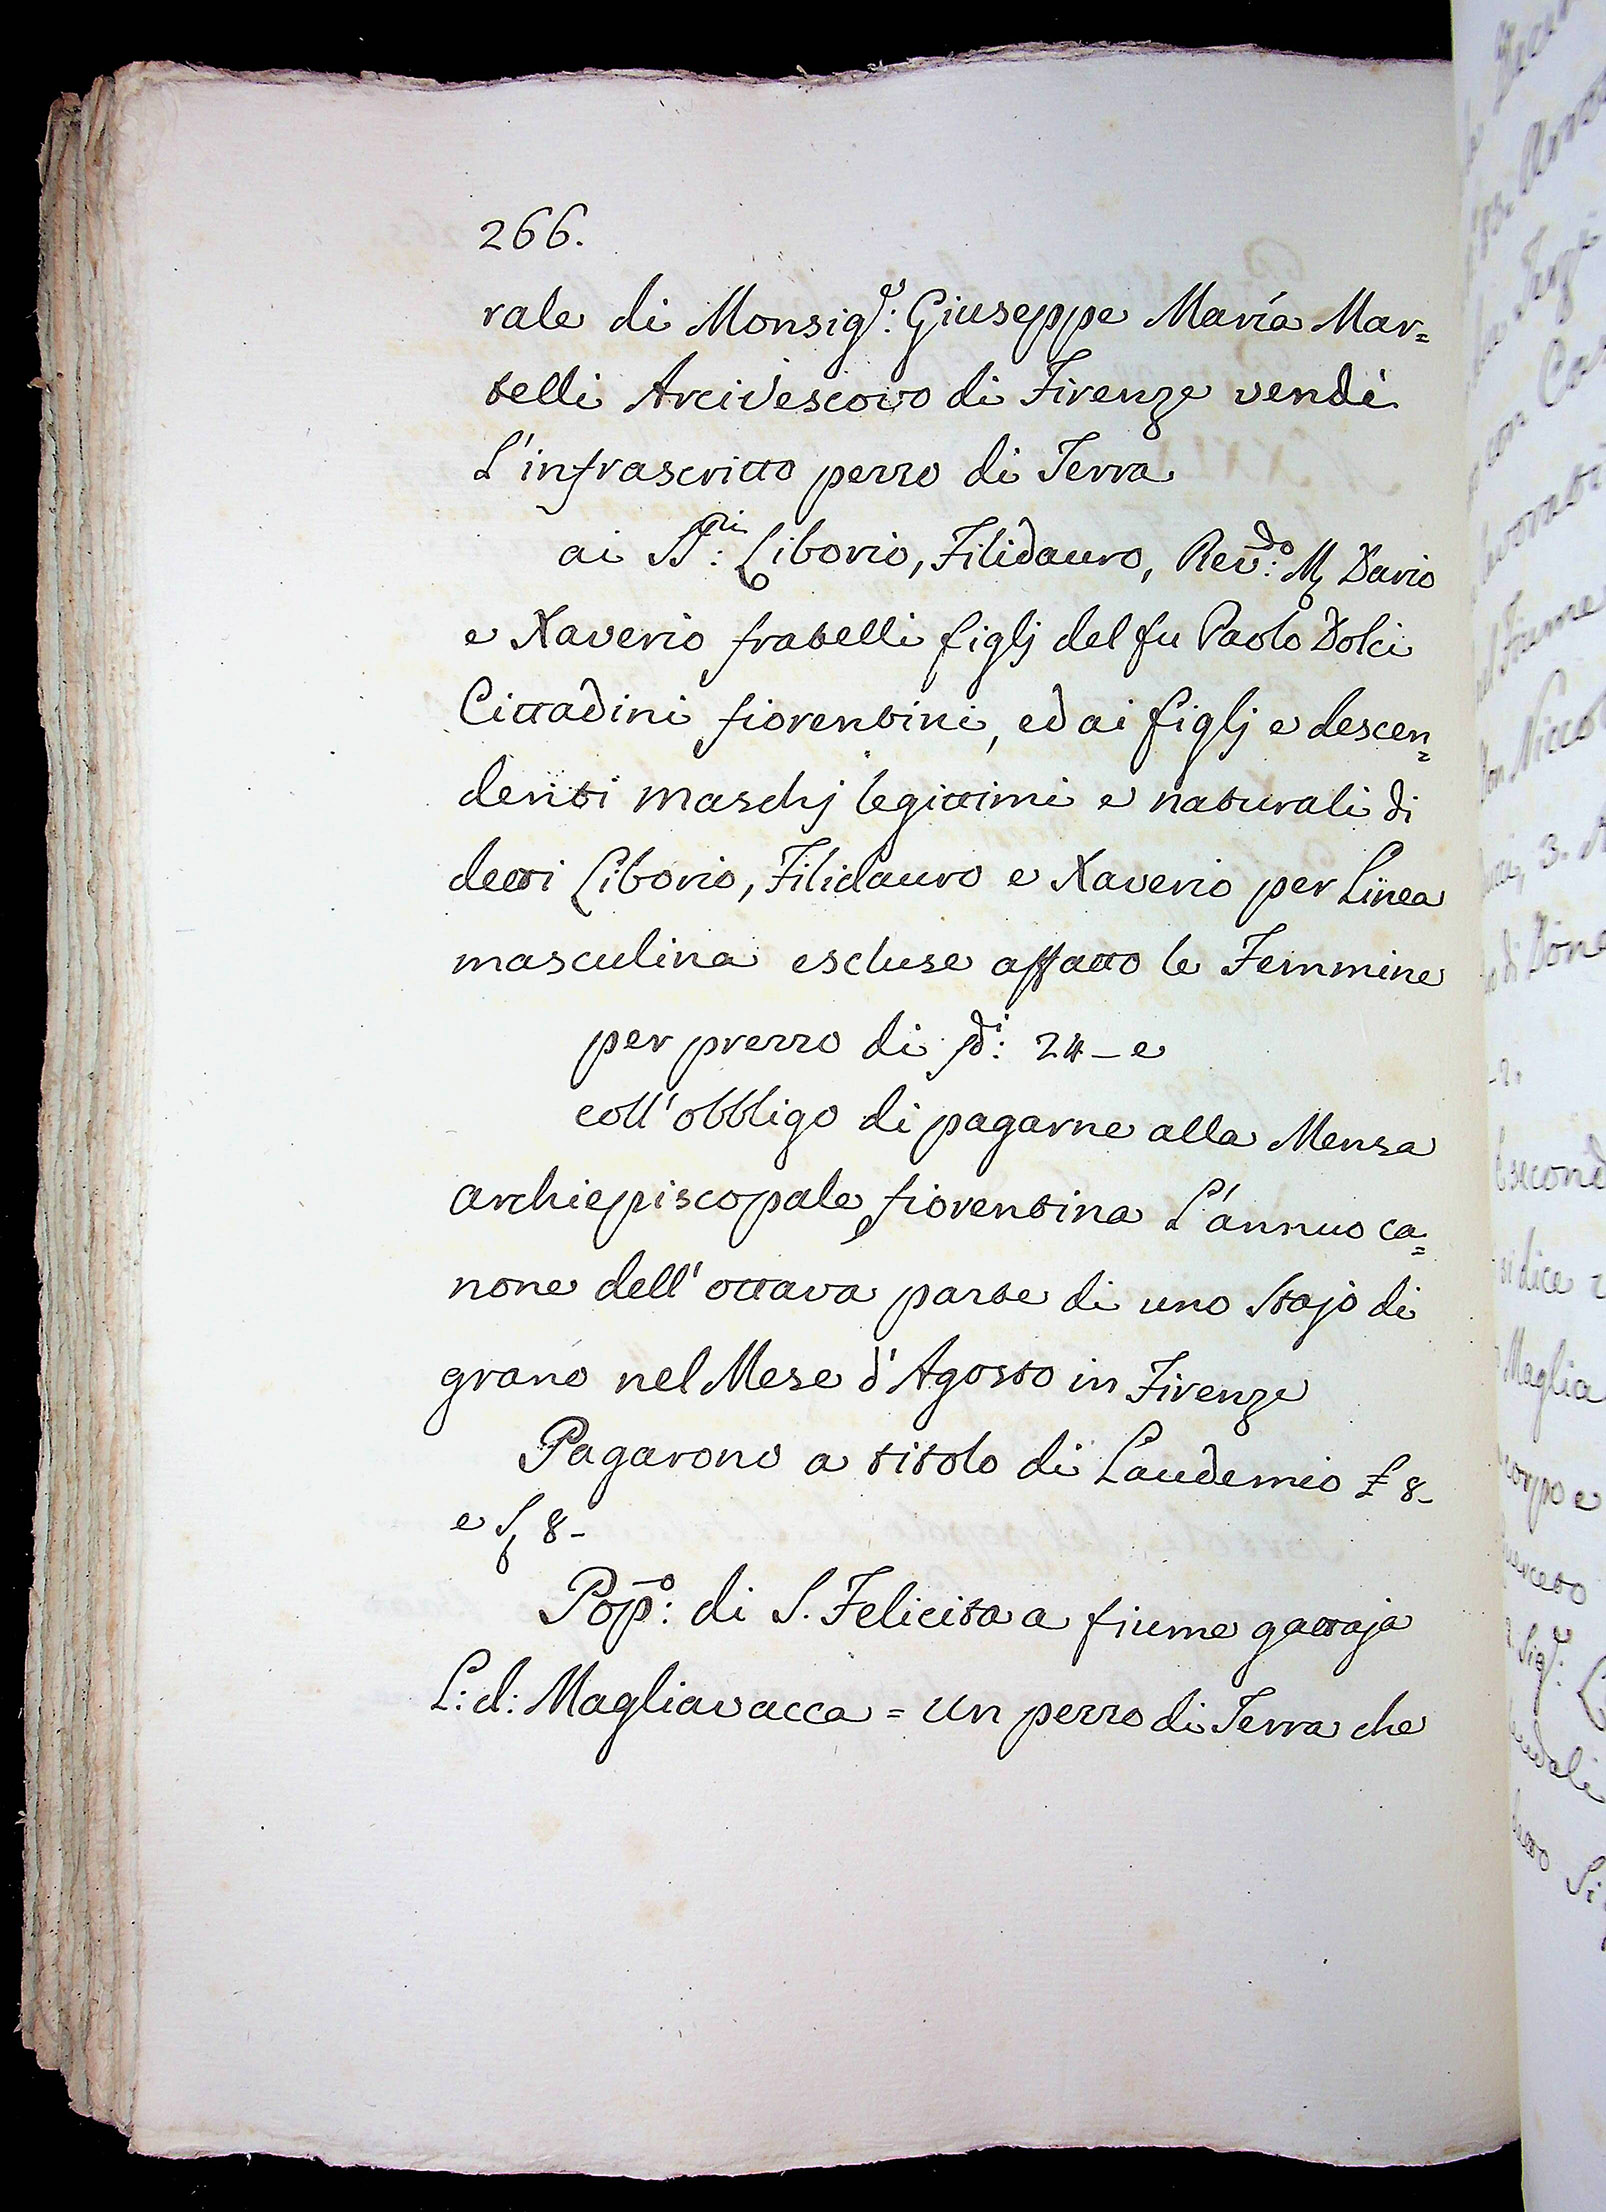 266.
rale di Monsig.e: Giuseppe Maria Mar=
telli Arcivescovo di Firenze vendè
L'infrascritto pezzo di Terra
ai SS.ri: Liborio, Filidauro, Rev.do: M, Dario
e Xaverio fratelli figlj del fu Paolo Dolci
Cittadini fiorentini, ed ai figlj e descen=
denti maschj legittimi e naturali di
detti Liborio, Filidauro e Xaverio per Linea
masculina escluse affatto le Femmine
per prezzo di di: 24 - e
coll'obbligo di pagarne alla Mensa
archiepiscopale fiorentina L'annuo ca=
none dell'ottava parte di uno Stajo di
grano nel Mese d'Agosto in Firenze
Pagarono a titolo di Laudemio £ 8 -
e S, 8 -
Pop.o: di S. Felicita a fiume gattaja
L: d: Magliavacca = un pezzo di Terra che